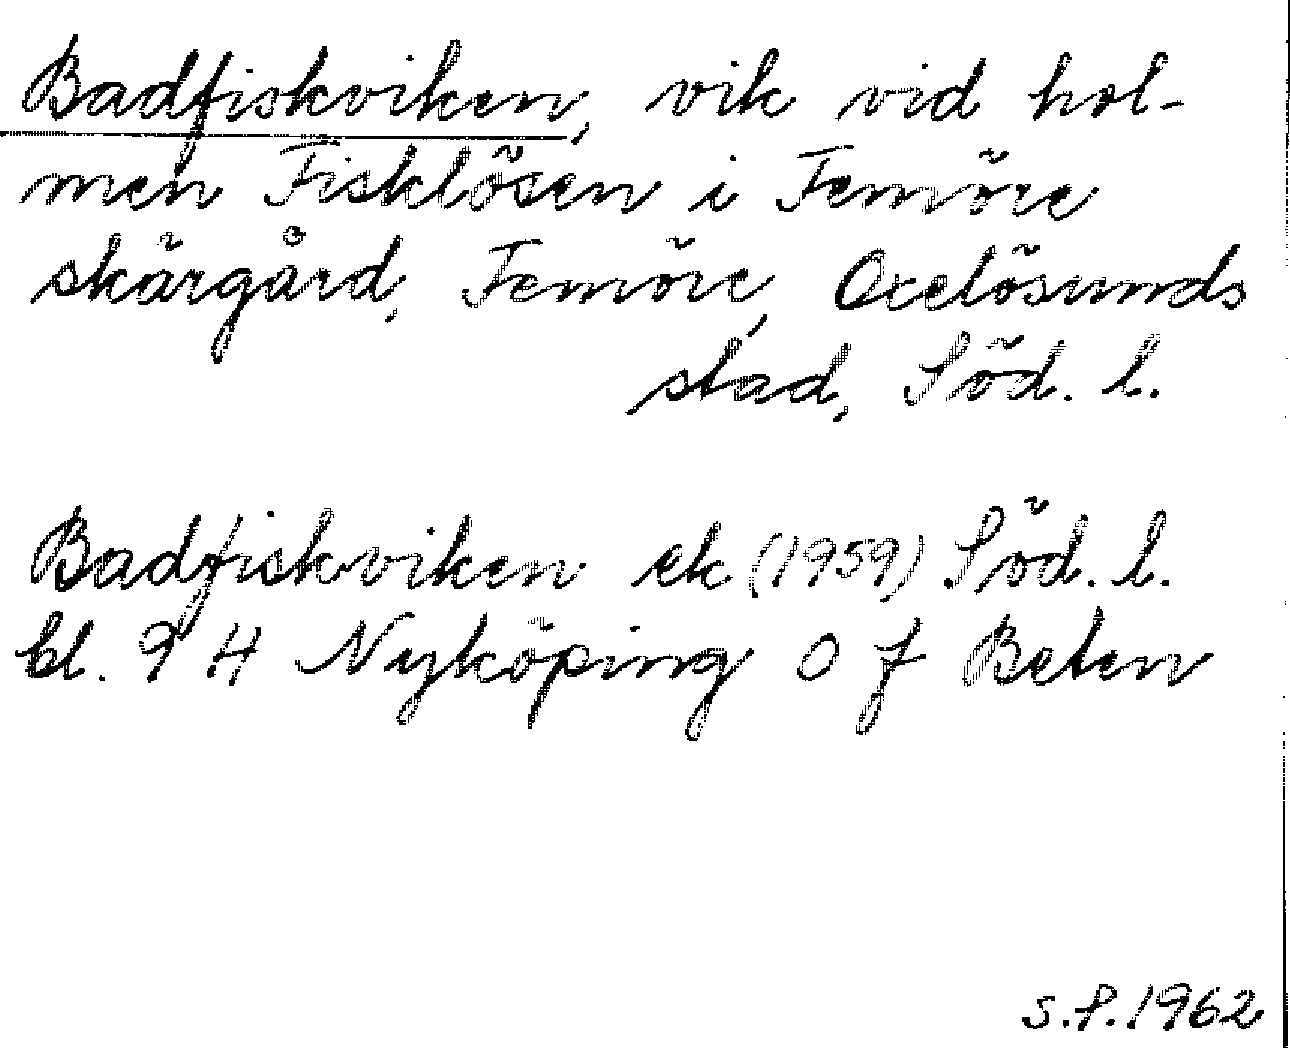 Badfiskviken, vik vid hol-
men Fisklösen i Femöre
skärgård, Femöre, Oxelösunds
stad, Söd. l.
Badfiskviken ek (1959) Söd. l.
bl. 9 H Nyköping O f Beten
S.P. 1962